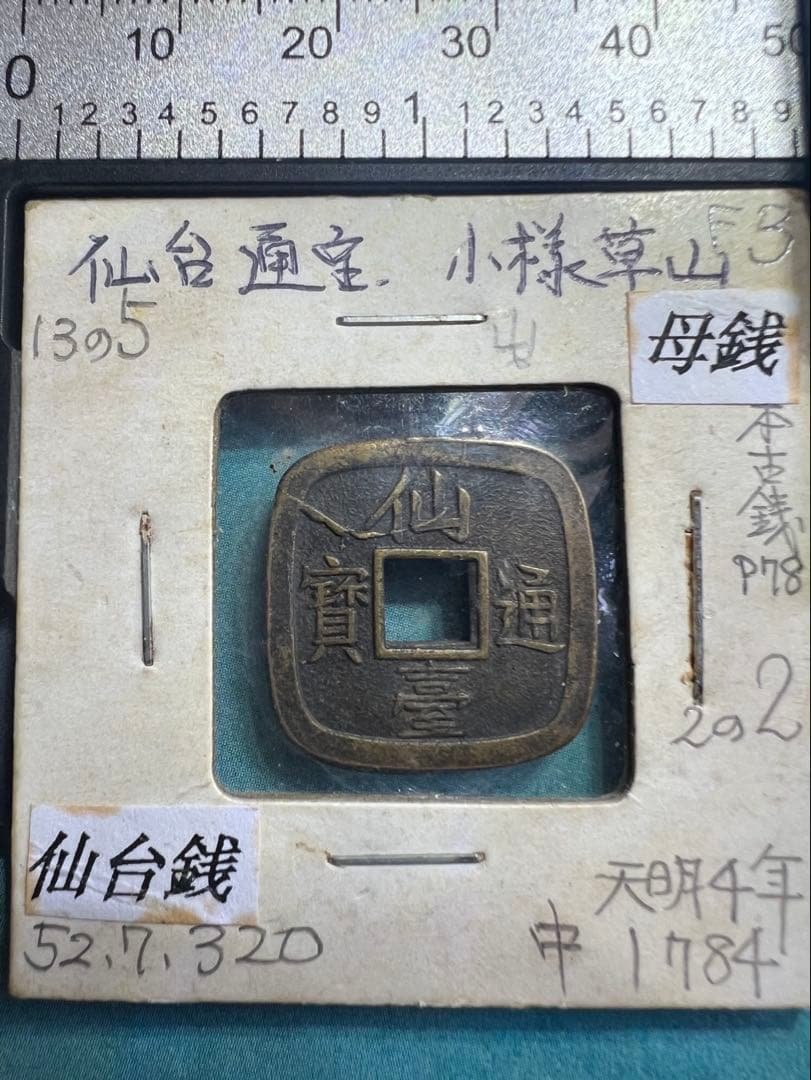 10 20 30 40 50
0
1 2 3 4 5 6 7 8 9 1 1 2 3 4 5 6 7 8 9
仙台通宝. 小様草山
13の5
母銭
本古銭
P78
仙
通
寳
臺
2の2
仙台銭
天明4年
52.7.320
中 1784